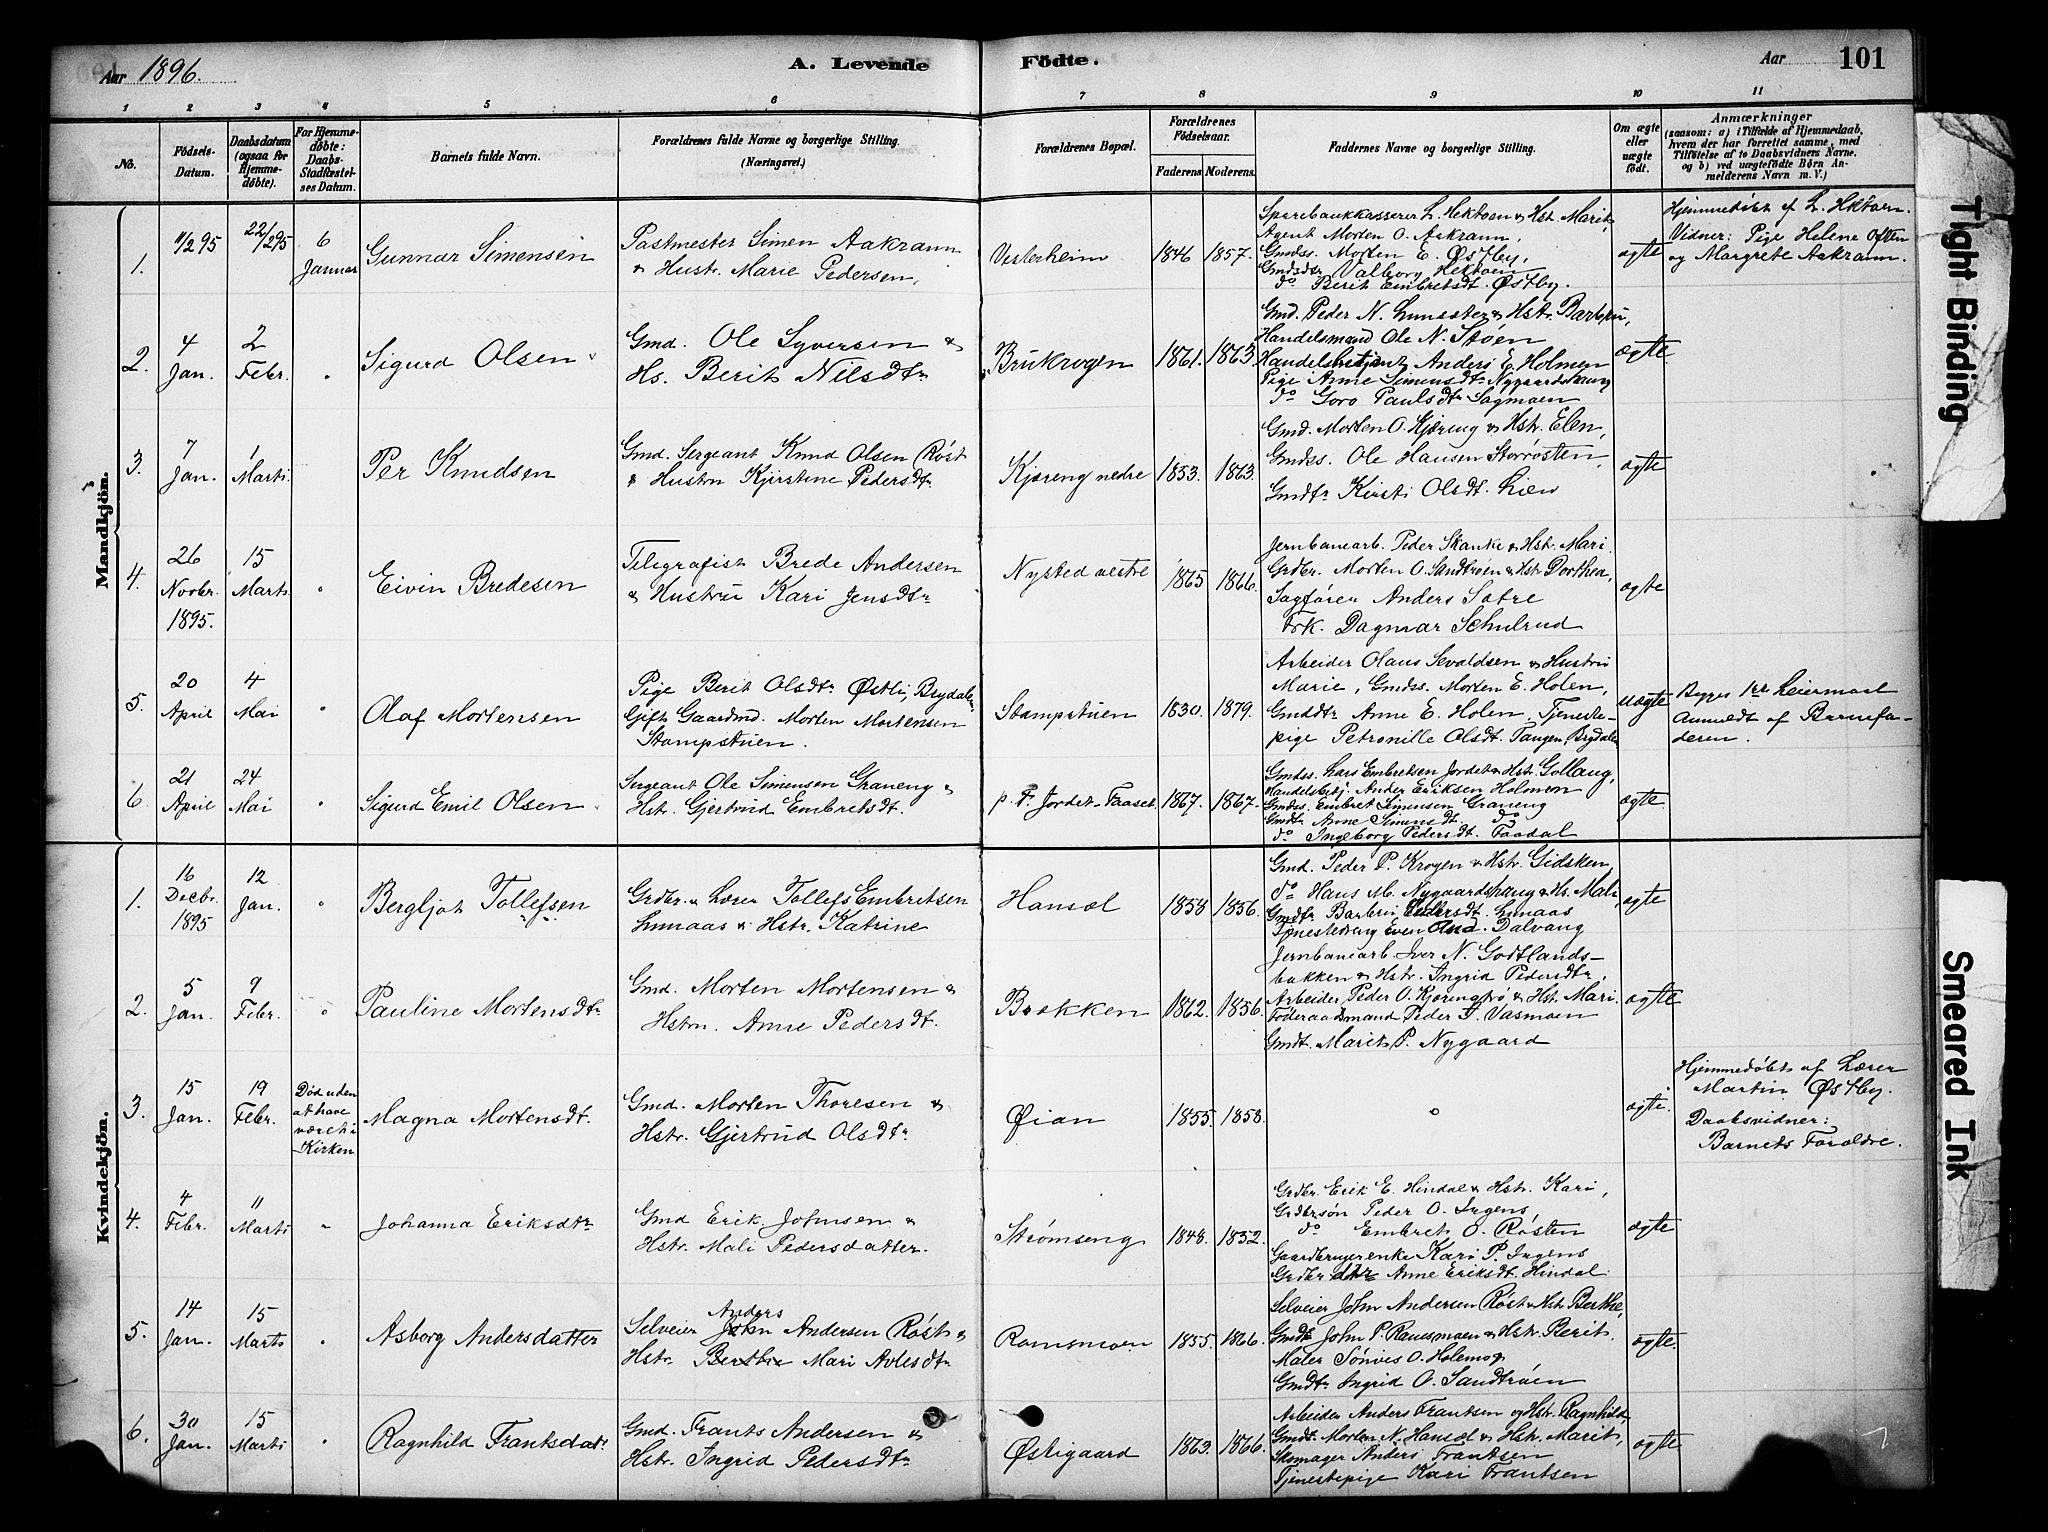 Aar 1896.
A. Levende Födte.
Aar
101
1 2 3 4 5 6 7 8 9 10 11
No.
Födsels-Datum.
Daabsdatum (ogsaa for Hjemme-döbte).
For Hjemme-döbte: Daabs-Stadfæstel-ses Datum.
Barnets fulde Navn.
Forældrenes fulde Navne og borgerlige Stilling.
(Næringsvei.)
Forældrenes Bopæl.
Forældrenes Födselsaar.
Faderens
Moderens.
Faddernes Navne og borgerlige Stilling.
Om ægte eller uægte födt.
Anmærkninger
(saasom: a) i Tilfælde af Hjemmedaab,
hvem der har forrettet samme, med
Tilföielse af to Daabsvidners Navne.
og b) ved uægtefödte Börn An-
melderens Navn m. V.)
Mandkjön.
1.
11/2 95
22/2 95
6 Januar
Gunnar Simensen
Postmester Simen Aakrann
& Hustr. Marie Pedersen,
Vesterheim
1846
1857.
Sparebankkasserer L. Hektoen & Hst. Marit,
Agent Morten O. Aakrann,
Gmdss. Morten E. Østby,
Gmdsdtr Valborg Hektoen
do Berit Embretsdt. Østby.
ægte
Hjemmedøbt af L. Hektoen.
Vidner: Pige Helene Often
og Margrete Aakrann.
2.
4 Jan.
2 Febr.
"
Sigurd Olsen
Gmd. Ole Syversen &
Hs. Berit Nilsdtr
Brukrogen
1861.
1863
Gmd. Peder N. Lunaaster & Hstr. Barbru,
Handelsmand Ole N. Støen
Handelsbetjent Anders E. Holmen
Pige Anne Simensdtr Nygaardshaug
do Goro Paulsdtr Sagmoen
ægte
3.
7 Jan.
1 Marts.
Per Knudsen
Gmd. Sergeant Knud Olsen Røst
& Hustru Kjirstine Pedersdtr
Kjæreng nedre
1853.
1863.
Gmd. Morten O. Kjæreng & Hstr. Elen,
Gmdss. Ole Hansen Storrøsten,
Gmdtr Kirsti Olsdt. Lien
ægte
4.
26 Novbr. 1895.
15 Marts
"
Eivin Bredesen
Telegrafist Brede Andersen
& Hustru Kari Jensdtr
Nysted vestre
1865
1866.
Jernbanearb. Peder Skanke & Hst. Mari
Grdbr. Morten O. Sandtrøen & Hstr Dorthea,
Sagfører Anders Sætre
Frk. Dagmar Schulrud
ægte
5.
20 April
4 Mai
"
Olaf Mortensen
Pige Berit Olsdtr Østli, Brydalen,
Gift Gaardmd. Morten Mortensen
Stampstuen.
Stampstuen
1830.
1879.
Arbeider Olaus Sevaldsen & Hustru
Marie, Gmdss. Morten E. Holen,
Gmddtr Anne E. Holen, Tjeneste-
pige Petronille Olsdt. Tangen, Brydalen
uægte
Begges 1ste Leiermaal
Anmeldt af Barnefa-
deren.
6.
21 April
24 Mai
"
Sigurd Emil Olsen
Sergeant Ole Simensen Graneng &
Hstr. Gjertrud Embretsdt.
p. t. Jordet-Faaset
1867.
1867.
Gmdss. Lars Embretsen Jordet & Hst. Gollaug,
Handelsbetj. Ander Eriksen Holmen
Gmdss. Embret Simensen Graneng
Gmdtr Anne Simensdt. do
do Ingeborg Pedersdt. Faadal
ægte
Kvindekjön.
1.
16 Decbr. 1895
12 Jan.
"
Bergljot Tollefsen
Grdbr. & Lærer Tollef Embretsen
Lunaas & Hstr. Katrine
Hansæl
1858
1856.
Gmd. Peder P. Krogen & Hstr. Gidsken,
do Hans M. Nygaardshaug & Hs. Mali,
Gmdtr Barbru Pedersdt. Lunaas
Tjenestedreng Even And. Dalvang
ægte
2.
5 Jan.
9 Febr.
"
Pauline Mortensdtr
Gmd. Morten Mortensen &
Hstru. Anne Pedersdt.
Bækken
1862.
1856.
Jernbanearb. Iver N. Godtlands-
bakken & Hstr. Ingrid Pedersdtr,
Arbeider Peder O. Kjæringtrø & Hst. Mari
Føderaadsmand Peder T. Vasmoen
Gmdt. Marit P. Nygaard
ægte
3.
15 Jan.
19 Febr.
Død uden at have været i Kirken
Magna Mortensdt.
Gmd. Morten Thoresen &
Hstr. Gjertrud Olsdtr
Øian
1855.
1858.
"
ægte.
Hjemmedøbt af Lærer
Martin Østby.
Daabsvidner:
Barnets Forældre.
4.
4 Febr.
11 Marts
"
Johanna Eriksdtr
Gmd Erik Johnsen &
Hstr. Mali Pedersdatter.
Strømseng
1848.
1852.
Grdbr. Erik E. Hindal & Hstr. Kari,
Grdbrsøn Peder O. Ingens
do Embret O. Røsten
Gaardbrugerenke Kari P. Ingens
Grdbrdtr Anne Eriksdt. Hindal.
ægte
5.
14 Jan.
15 Marts
"
Asborg Andersdatter
Anders
Selveier John Andersen Røst &
Hstr. Berthe Mari Avlesdtr
Ramsmoen
1855.
1866.
Selveier John Andersen Røst & Hst. Berthe,
Gmdt John P. Ramsmoen & Hstr. Berit.
Maler Sønves O. Holemog
Gmdtr Ingrid O. Sandtrøen
ægte
6.
30 Jan.
15 Marts
"
Ragnhild Frantsdatr
Gmd. Frants Andersen &
Hstr. Ingrid Pedersdtr
Østigaard
1863.
1866.
Arbeider Anders Frantsen og Hstr. Ragnhild,
Gmdt. Morten N. Hansæl & Hstr. Marit,
Skomager Anders Frantsen
Tjenestepige Kari Frantsen
ægte
Tight Binding
Smeared Ink